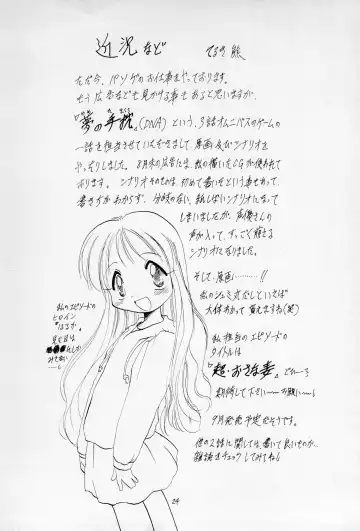 近況など
てるき熊
ただ今、パソゲのお仕事をやっております。
もう広告などを見かける事もあると思いますが、
『夢の手枕』(DNA)という、3話オムニバスのゲームの
一話を担当させていただきまして、原画及びシナリオを
やったりしました。8月末の広告には、私の描いたCGが使われて
おります。シナリオそのものは、初めて書いたという事もあって、
書き方がわからず、分岐のない、妖しいシナリオになって
しまいましたが、声優さんの
声が入って、すっごく萌える
シナリオになりました。
そして、原画…………!!
私のシュミまるだしといえば
大体わかって貰えますね(笑)
私担当のエピソードの
タイトルは
『超・おさな妻』
期待して下さい お願い
9月発売予定だそうです。
他の2話に関しては、書いて良いものか…
雑誌をチェックしてみてね
私のエピソードの
ヒロイン
"はるか"。
24